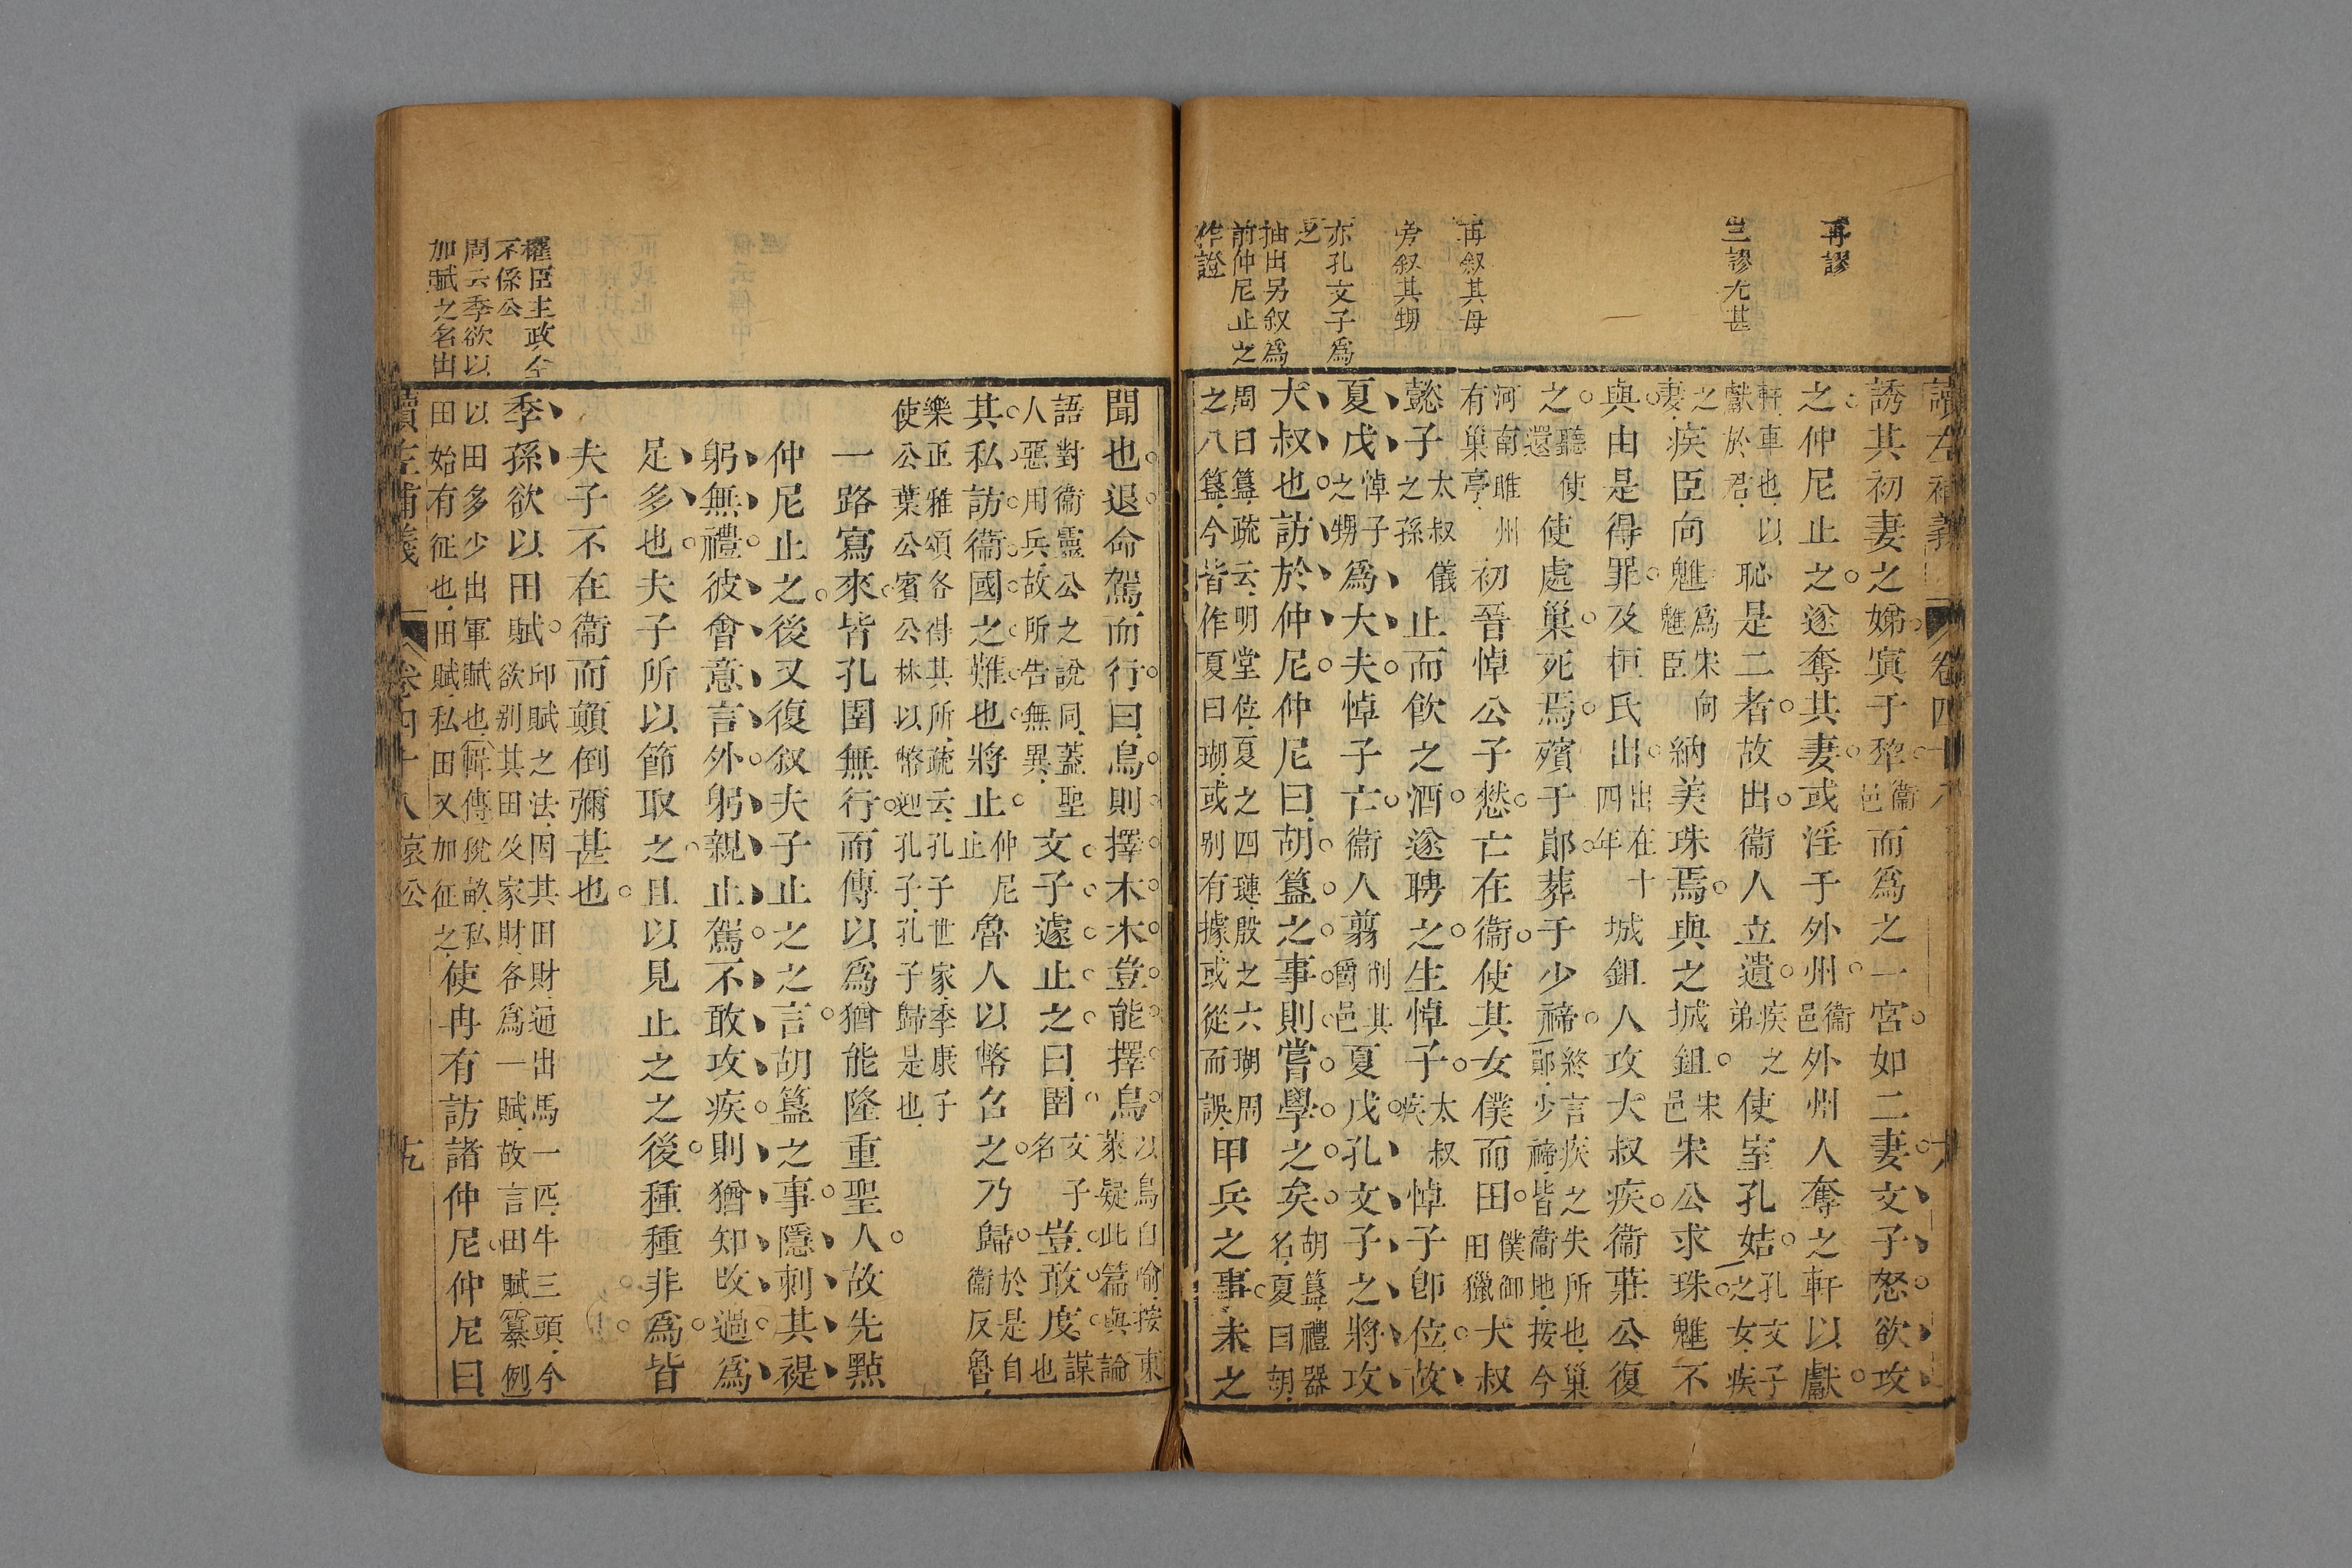 再謬
三謬尤甚
再叙其母
旁叙其甥
亦孔文子爲
之
抽出另叙爲
前仲尼止之
作證
讀左補義
卷四十八
誘其初妻之娣寘于犂衞邑而爲之一宮如二妻文子怒欲攻
之仲尼止之遂奪其妻或淫于外州衞邑外州人奪之軒以獻
軒車也以獻於君恥是二者故出衞人立遺疾之弟使室孔姞孔文子之女疾
之妻疾臣向魋爲宋向魋臣納美珠焉與之城鉏宋邑宋公求珠魋不
與由是得罪及桓氏出出在十四年城鉏人攻大叔疾衞莊公復
之聽使還使處巢死焉殯于鄖葬于少禘終言疾之失所也巢鄖少禘皆衞地按今
河南睢州有巢亭初晉悼公子憖亡在衞使其女僕而田僕御田獵大叔
懿子太叔儀之孫止而飮之酒遂聘之生悼子太叔疾悼子卽位故
夏戊悼子之甥爲大夫悼子亡衞人翦削其爵邑夏戊孔文子之將攻
大叔也訪於仲尼仲尼曰胡簋之事則嘗學之矣胡簋禮器名夏曰胡
周曰簋疏云明堂位夏之四璉殷之六瑚周之八簋今皆作夏曰瑚或别有據或從而誤甲兵之事未之
聞也退命駕而行曰鳥則擇木木豈能擇鳥以鳥自喻按東萊疑此篇與論
語對衞靈公之說同蓋聖人惡用兵故所告無異文子遽止之曰圉文子名豈敢度謀也
其私訪衞國之難也將止仲尼止魯人以幣召之乃歸於是自衞反魯
樂正雅頌各得其所疏云孔子世家季康子使公葉公賓公林以幣迎孔子孔子歸是也
一路寫來皆孔圉無行而傳以爲猶能隆重聖人故先點
仲尼止之後又復叙夫子止之之言胡簋之事隱刺其禔
躬無禮彼會意言外躬親止駕不敢攻疾則猶知改過爲
足多也夫子所以節取之且以見止之之後種種非爲皆
夫子不在衞而顛倒彌甚也
權臣主政全
不係公
周云季欲以
加賦之名出
季孫欲以田賦邱賦之法因其田財通出馬一匹牛三頭今欲别其田及家財各爲一賦故言田賦纂例
以田多少出軍賦也辯傳稅畝私田始有征也田賦私田又加征之使冉有訪諸仲尼仲尼曰
讀左補義
卷四十八哀公